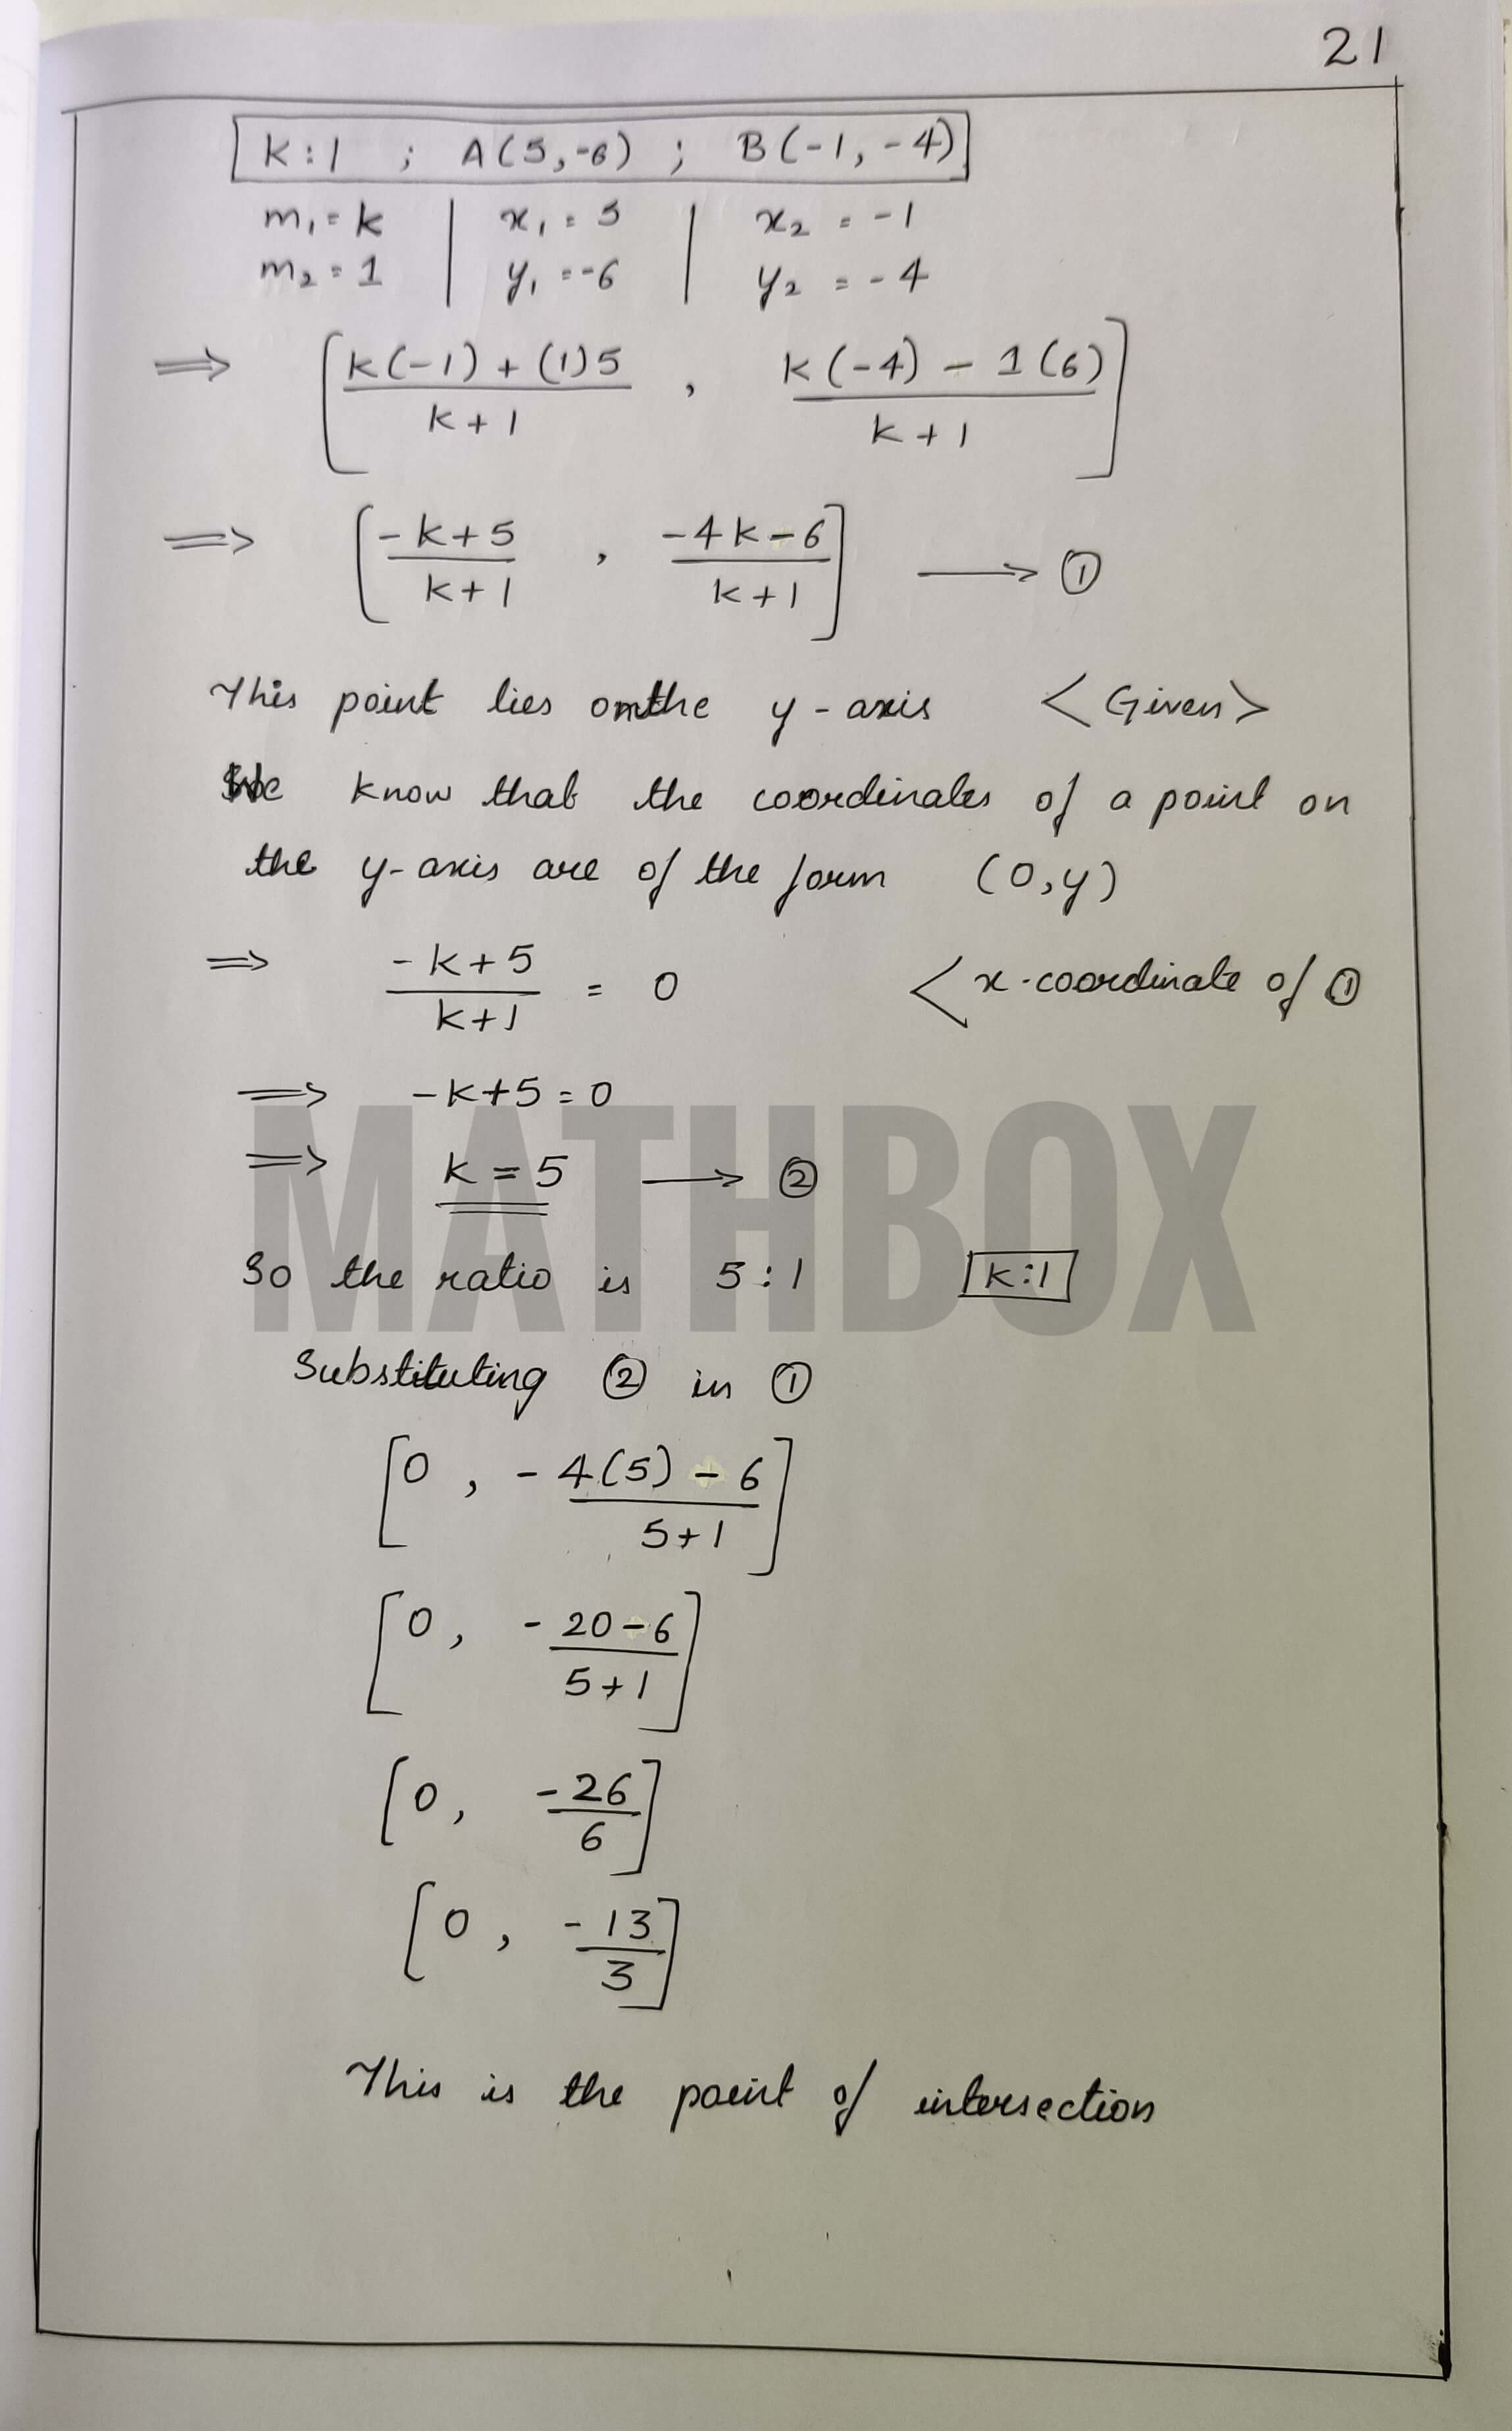 21
K:1 ; A(5,-6) ; B(-1,-4)
m₁=k | x₁=5 | x₂=-1
m₂=1 | y₁=-6 | y₂=-4
⟹ [k(-1)+(1)5 / k+1 , k(-4)-1(6) / k+1]
⟹ [-k+5 / k+1 , -4k-6 / k+1] ⟶ ①
This point lies on the y-axis <Given>
We know that the coordinates of a point on
the y-axis are of the form (0,y)
⟹ -k+5 / k+1 = 0 <x-coordinate of ①
⟹ -k+5=0
⟹ k=5 ⟶ ②
So the ratio is 5:1 K:1
MATHBOX
Substituting ② in ①
[0, -4(5)-6 / 5+1]
[0, -20-6 / 5+1]
[0, -26 / 6]
[0, -13 / 3]
This is the point of intersection